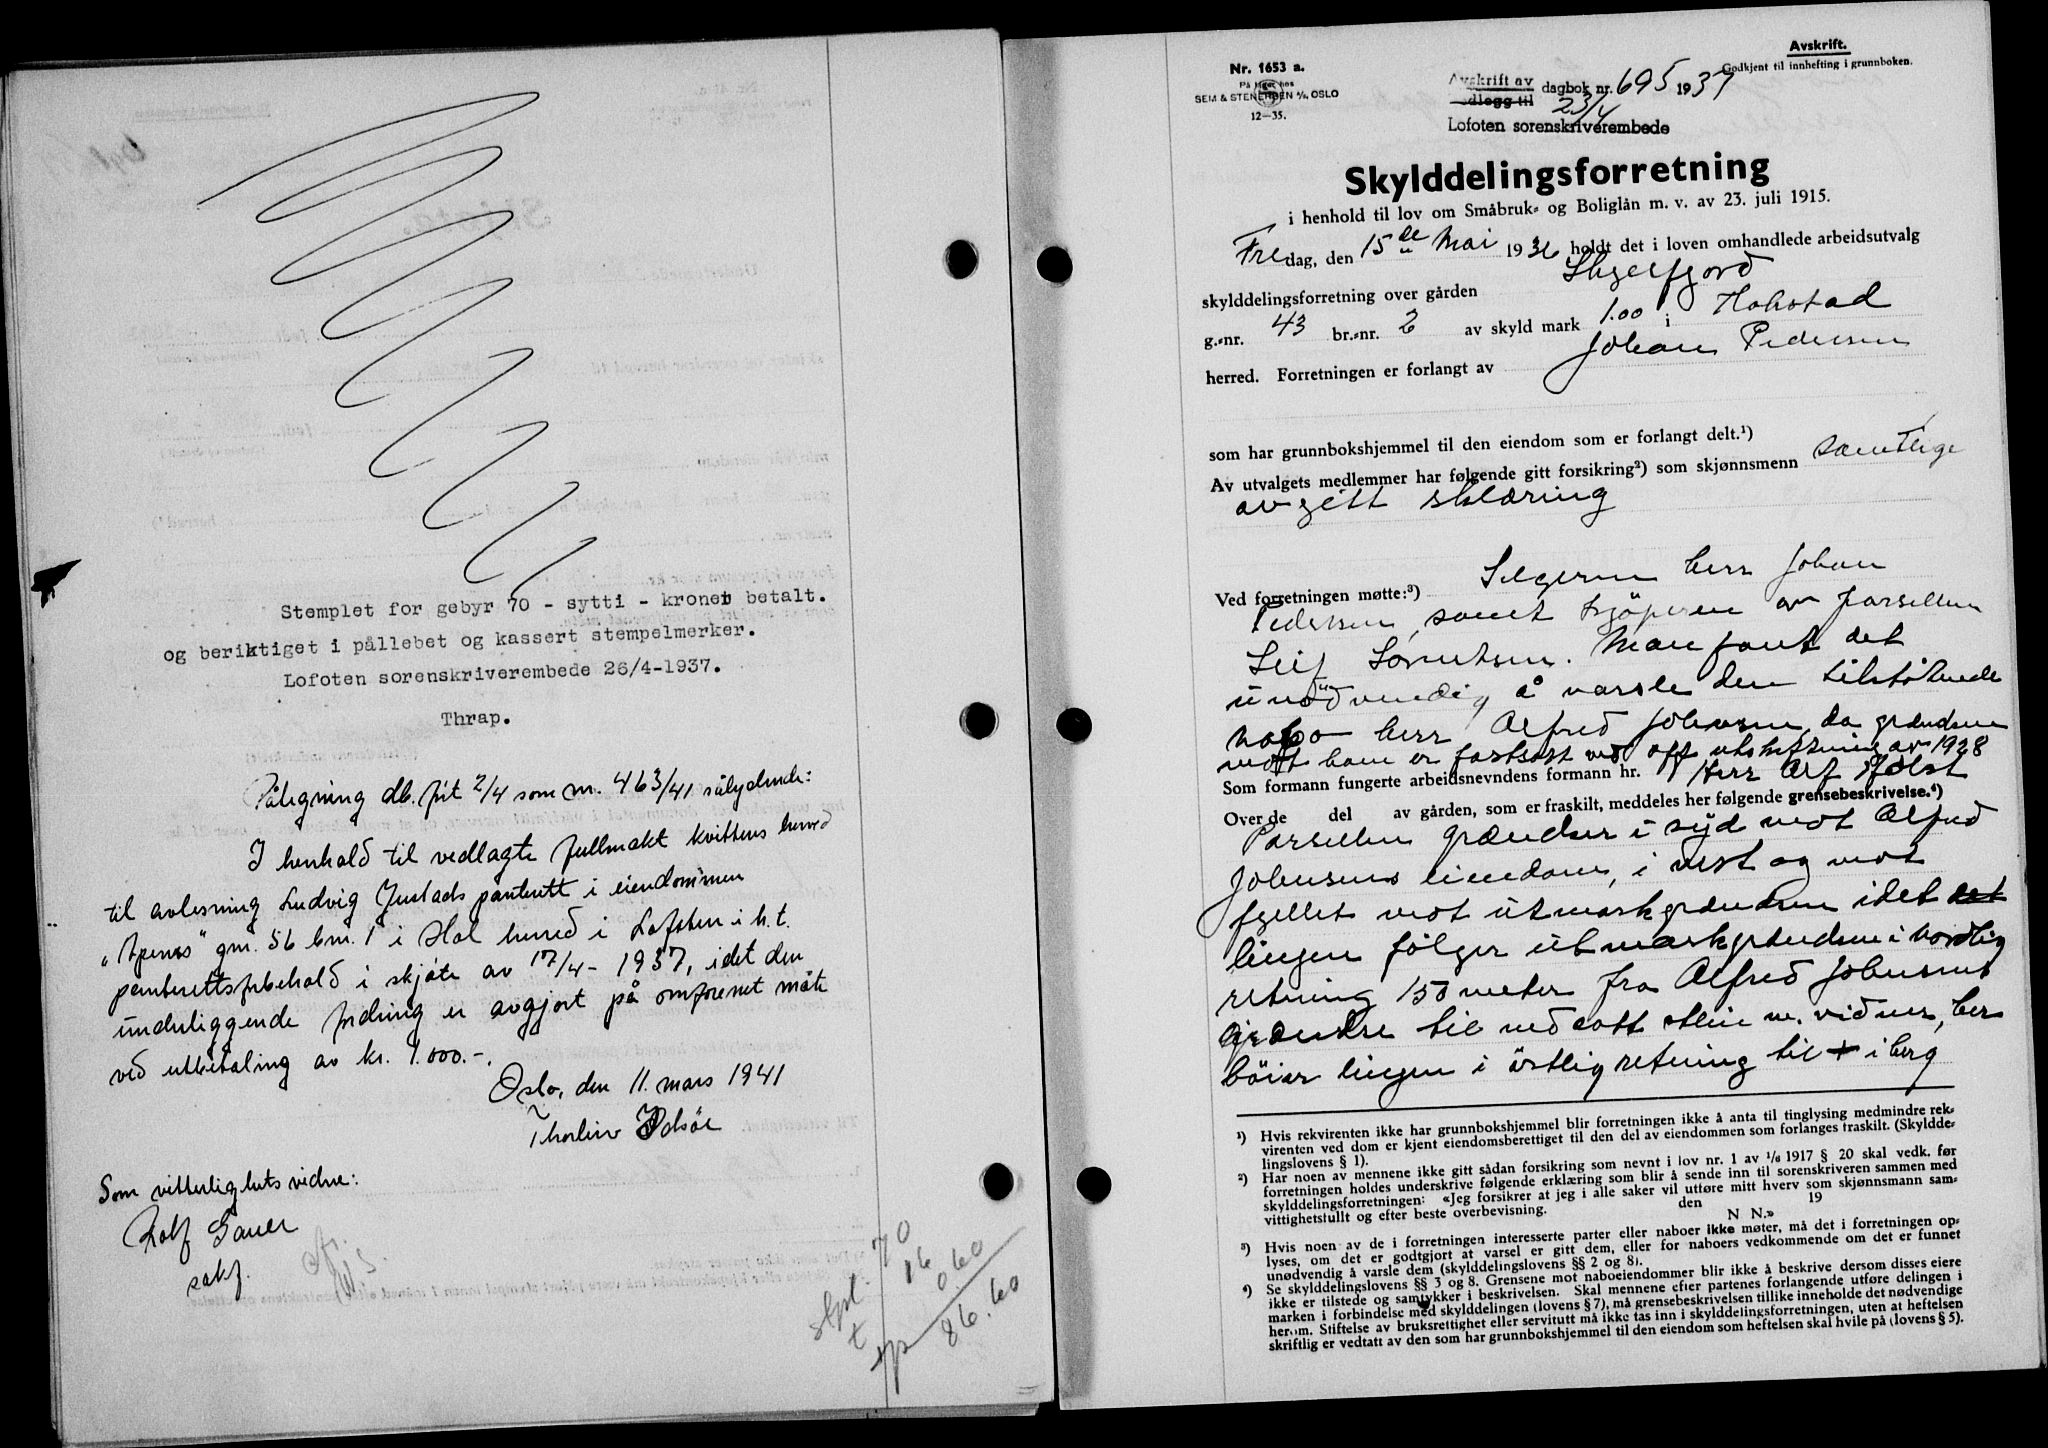 Stemplet for gebyr 70 - sytti - kroner betalt.
og beriktiget i pållebet og kassert stempelmerker.
Lofoten sorenskriverembede 26/4-1937.
Thrap.
Påtegning db. ført 2/4 som nr. 463/41 sålydende:
I henhold til vedlagte fullmakt kvitteres herved
til avlesning Ludvig Justads panterett i eiendommen
"Apenes" gnr. 56 bnr. 1 i Hol herred i Lofoten i h.t.
panterettsforbehold i skjøte av 17/4-1937, idet den
underliggende fordring er avgjort på omforenet måte
ved utbetaling av kr. 1.000.-.
Oslo, den 11. mars 1941
Som vitterlighetsvidne:
Rolf
sakf.
70
16
0.60
86.60
Nr. 1653 a.
På lager hos
SEM & STENERSEN A/S, OSLO
12—35.
Avskrift.
Godkjent til innhefting i grunnboken.
Avskrift av dagbok nr. 695 1937
vedlegg til 23/4
Lofoten sorenskriverembede
Skylddelingsforretning
i henhold til lov om Småbruk- og Boliglån m. v. av 23. juli 1915.
Fredag, den 15de Mai 1936 holdt det i loven omhandlede arbeidsutvalg
skylddelingsforretning over gården
g.-nr. 43 br.-nr. 2 av skyld mark 1.00 i
herred. Forretningen er forlangt av Johan Pedersen
som har grunnbokshjemmel til den eiendom som er forlangt delt.¹)
Av utvalgets medlemmer har følgende gitt forsikring²) som skjønnsmenn samtlige
avgitt
Ved forretningen møtte:³) Selgeren herr Johan
Pedersen, samt kjøperen av parsellen
Leif Lorentsen. Man fant det
unødvendig å varsle den tilstøtende
nabo herr Alfred Johnsen da grændsen
mot ham er fastsatt ved off utskiftning av 1928
Som formann fungerte arbeidsnevndens formann hr. Herr Alf Holst
Over de del av gården, som er fraskilt, meddeles her følgende grensebeskrivelse.⁴)
Parsellen grændser i syd mot Alfred
Johnsens eiendom, i vest og mot
fjellet mot utmarkgrændsen idet det
lingen følger utmarkgrændsen i nordlig
retning 150 meter fra Alfred Johnsens
grændse til nedsatt stein m. vidner, her
böier lingen i östlig retning til + i berg
¹) Hvis rekvirenten ikke har grunnbokshjemmel blir forretningen ikke å anta til tinglysing medmindre rek-
virenten ved dom er kjent eiendomsberettiget til den del av eiendommen som forlanges fraskilt. (Skyldde-
lingslovens § 1).
²) Har noen av mennene ikke gitt sådan forsikring som nevnt i lov nr. 1 av 1/6 1917 § 20 skal vedk. før
forretningen holdes underskrive følgende erklæring som blir å sende inn til sorenskriveren sammen med
skylddelingsforretningen: «Jeg forsikrer at jeg i alle saker vil utføre mitt hverv som skjønnsmann sam-
vittighetsfullt og efter beste overbevisning. den 19
N N.»
³) Hvis noen av de i forretningen interesserte parter eller naboer ikke møter, må det i forretningen op-
lyses, om det er godtgjort at varsel er gitt dem, eller for naboers vedkommende om det er funnet
unødvendig å varsle dem (skylddelingslovens §§ 2 og 8).
⁴) Se skylddelingslovens §§ 3 og 8. Grensene mot naboeiendommer blir ikke å beskrive dersom disses eiere
ikke er tilstede og samtykker i beskrivelsen. Skal mennene efter partenes forlangende utføre delingen i
marken i forbindelse med skylddelingen (lovens § 7), må grensebeskrivelsen tillike inneholde det nødvendige
herom. Stiftelse av bruksrettighet eller servitutt må ikke tas inn i skylddelingsforretningen, uten at heftelsen
skriftlig er vedtatt av den som har grunnbokshjemmel til den eiendom som heftelsen skal hvile på (lovens § 5).